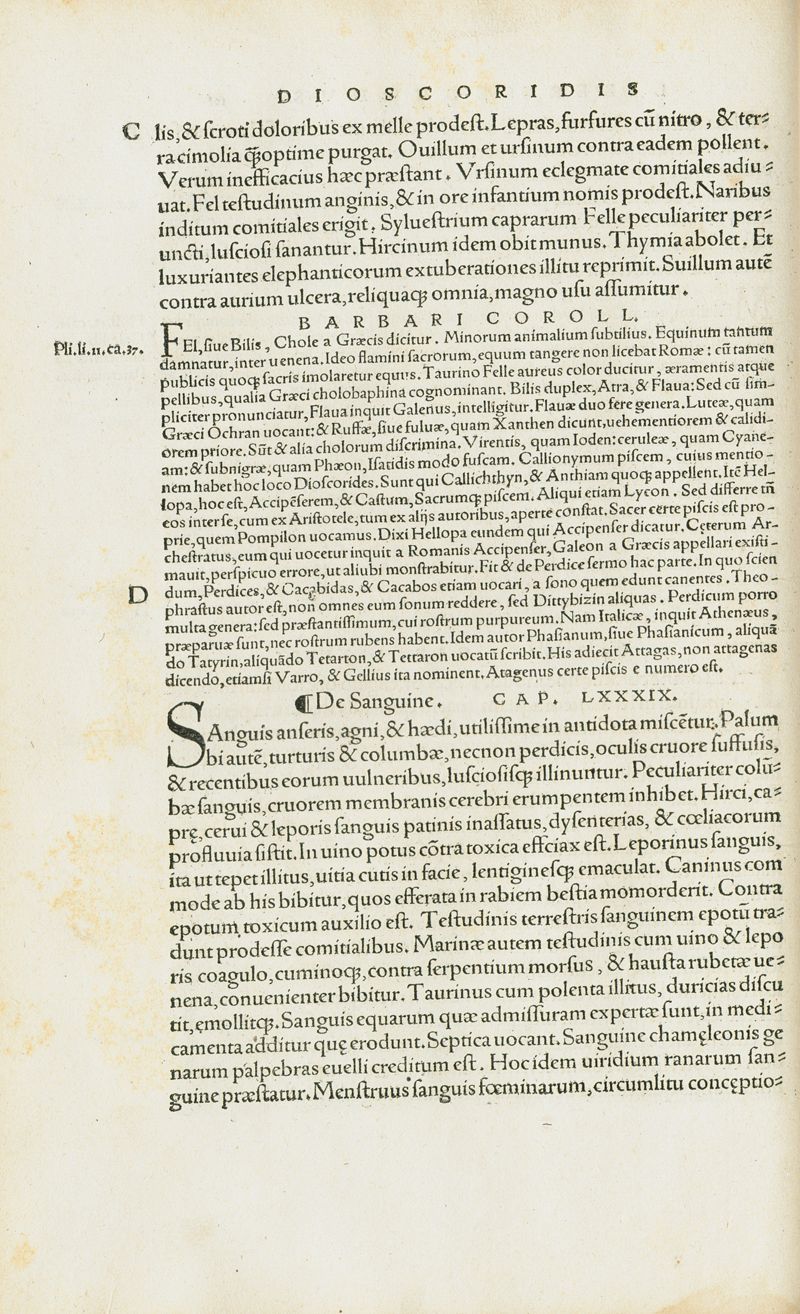 DIOSCORIDIS
C lis,& ſcroti doloribus ex melle prodeſt.Lepras,furfures cū nitro , & ter⸗
ra cimolia q̃ȝ optime purgat. Ouillum et urſinum contra eadem pollent.
Verum inefficacius hæc præſtant . Vrſinum eclegmate comitiales adiu⸗
uat.Fel teſtudinum anginis,& in ore infantium nomis prodeſt.Naribus
inditum comitiales erigit . Sylueſtrium caprarum Felle peculiariter per⸗
uncti,luſcioſi ſanantur.Hircinum idem obit munus.Thymia abolet. Et
luxuriantes elephanticorum extuberationes illitu reprimit.Suillum autē
contra aurium ulcera,reliquaqȝ omnia,magno uſu aſſumitur.
BARBARI COROLL.
Pli.li.11.ca.37.
FEl,ſiue Bilis , Chole a Græcis dicitur . Minorum animalium ſubtilius. Equinum tantum
damnatur,inter uenena.Ideo flamini ſacrorum,equum tangere non licebat Romæ: cū tamen
publicis quoqȝ ſacris imolaretur equus.Taurino Felle aureus color ducitur , æramentis atque
pellibus,qualia Græci cholobaphina cognominant. Bilis duplex,Atra,& Flaua:Sed cū ſim-
pliciter pronunciatur,Flaua inquit Galenus,intelligitur.Flauæ duo fere genera.Luteæ,quam
Græci Ochran uocant:& Ruffæ,ſiue fuluæ,quam Xanthen dicunt,uehementiorem & calidi-
orem priore.Sūt & alia cholorum diſcrimina.Virentis, quam Ioden:ceruleæ , quam Cyane-
am:& ſubnigræ,quam Phæon,Iſatidis modo fuſcam. Callionymum piſcem , cuius mentio-
nem habet hoc loco Dioſcorides.Sunt qui Callichthyn,& Anthiam quoqȝ appellent.Itē Hel-
lopa,hoc eſt,Accipēſerem,& Caſtum,Sacrumqȝ piſcem.Aliqui etiam Lycon . Sed differre tñ
eos inter ſe,cum ex Ariſtotele,tum ex alijs autoribus,aperte conſtat.Sacer certe piſcis eſt pro-
prie,quem Pompilon uocamus.Dixi Hellopa eundem qui Accipenſer dicatur.Cęterum Ar-
cheſtratus,eum qui uocetur inquit a Romanis Accipenſer,Galeon a Græcis appellari exiſti-
mauit,perſpicuo errore,ut aliubi monſtrabitur.Fit & de Perdice ſermo hac parte.In quo ſcien
D dum,Perdices,& Cacabidas,& Cacabos etiam uocari, a ſono quem edunt canentes .Theo-
phraſtus autor eſt,non omnes eum ſonum reddere, ſed Dittybizin aliquas . Perdicum porro
multa genera:ſed præſtantiſſimum,cui roſtrum purpureum.Nam Italicæ, inquit Athenæus,
præparuæ ſunt,nec roſtrum rubens habent.Idem autor Phaſianum,ſiue Phaſianicum, aliquā
do Tatyrin,aliquādo Tetarton,& Tetraron uocatū ſcribit.His adiecit Attagas,non attagenas
dicendo,etiamſi Varro, & Gellius ita nominent.Atagenus certe piſcis e numero eſt.
¶De Sanguine. CAP. LXXXIX.
SAnguis anſeris,agni,& hædi,utiliſſime in antidota miſcētur.Palum
bi autē,turturis & columbæ,necnon perdicis,oculis cruore ſuffuſis,
& recentibus eorum uulneribus,luſcioſiſqȝ illinuntur. Peculiariter colū⸗
bæ ſanguis,cruorem membranis cerebri erumpentem inhibet.Hirci,ca⸗
prę,cerui & leporis ſanguis patinis inaſſatus,dyſenterias, & cœliacorum
profluuia ſiſtit.In uino potus cōtra toxica efficiax eſt.Leporinus ſanguis,
ita ut tepet illitus,uitia cutis in facie, lentigineſqȝ emaculat. Caninus com
mode ab his bibitur,quos efferata in rabiem beſtia momorderit. Contra
epotum toxicum auxilio eſt. Teſtudinis terreſtris ſanguinem epotū tra⸗
dunt prodeſſe comitialibus. Marinæ autem teſtudinis cum uino & lepo
ris coagulo,cuminoqȝ,contra ſerpentium morſus , & hauſta rubetæ ue⸗
nena,conuenienter bibitur.Taurinus cum polenta illitus, duricias diſcu
tit,emollitqȝ.Sanguis equarum quæ admiſſuram expertæ ſunt,in medi⸗
camenta additur quę erodunt.Septica uocant.Sanguine chamęleonis ge
narum palpebras euelli creditum eſt . Hoc idem uiridium ranarum ſan⸗
guine præſtatur.Menſtruus ſanguis fœminarum,circumlitu concęptio⸗